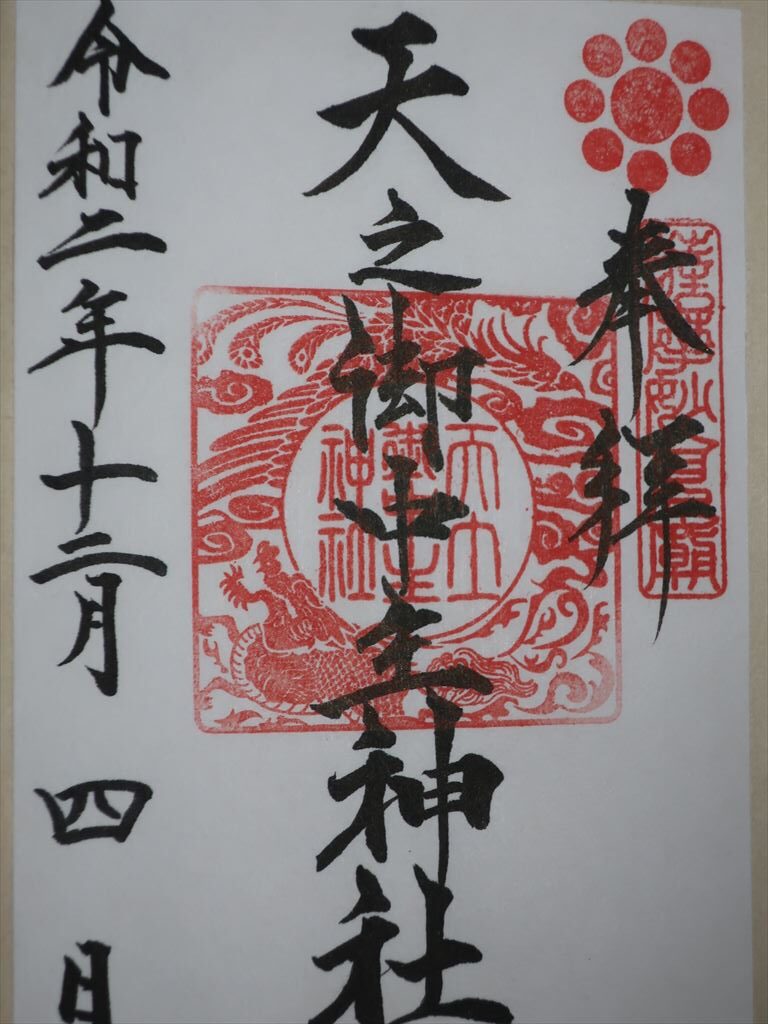 奉拝
天之御中主神社
天之
御中主
神社
令和二年十二月四日